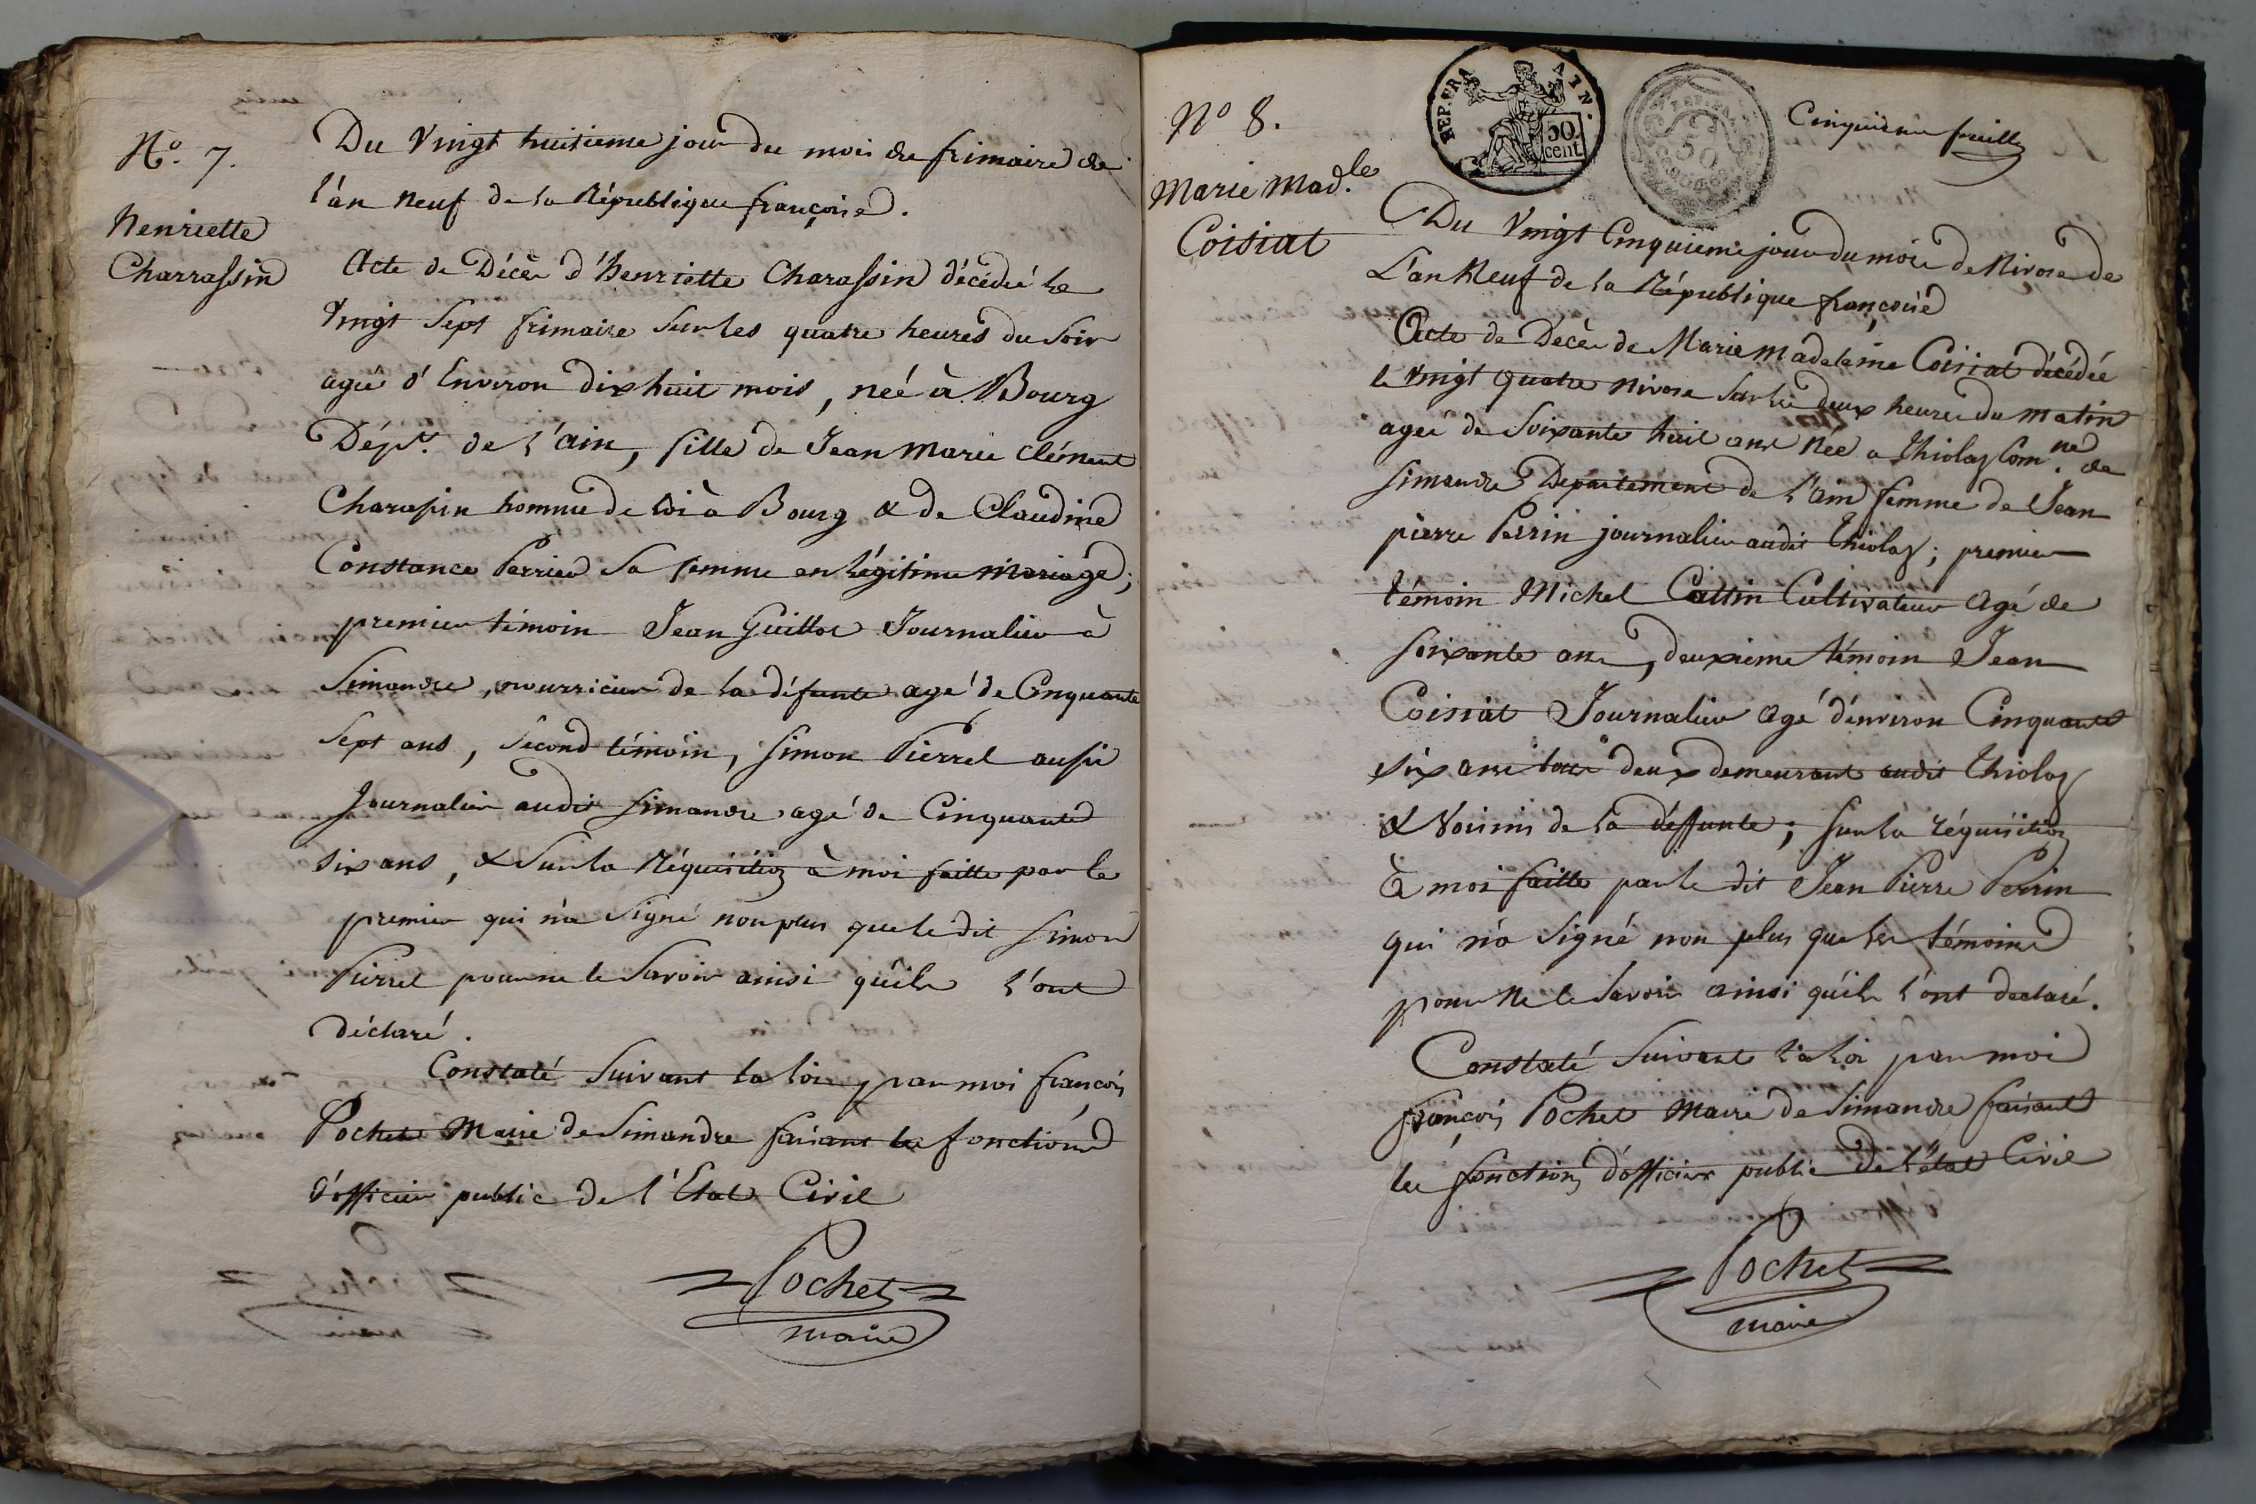 N.º 7.
Henriette
Charrassin
Du Vingt huitieme jour du mois de frimaire de
l'an neuf de la République françoise.
Acte de Décès d'henriette Charassin décédée le
Vingt Sept frimaire Sur les quatre heures du Soir
agée d'Environ dix huit mois, née à Bourg
Dépt. de l'ain, fille de Jean Marie Clément
Charassin homme de loi à Bourg & de Claudine
Constance Perrier Sa femme en légitime Mariage;
premier témoin Jean Guillot Journalier à
Simandre, nourricier de la défunte agé de Cinquante
Sept ans, Second témoin, Simon Pierrel aussi
Journalier audit Simandre agé de Cinquante
Six ans, & Sur la Réquisition à moi faitte par le
premier qui n'a Signé non plus que le dit Simon
Pierrel pour ne le Savoir ainsi qu'ils l'ont
déclaré.
Constaté Suivant la loi, par moi françois
Pochet Maire de Simandre faisant les fonctions
d'officier public de l'Etat Civil
Pochet
maire
Nº 8.
Marie Mad.le
Coisiat
REP. FRA
50
cent
50
Cinquieme feuille
Du Vingt Cinquieme jour du mois de Nivose de
L'an Neuf de la République françoise
Acte de Décès de Marie Madeleine Coisiat décédée
le Vingt quatre nivose Sur les deux heures du matin
agée de Soixante huit ans Née a Thiolay Com.ne de
Simandre Departement de l'ain femme de Jean
pierre Perrin journalier audit Thiolay; premier
témoin Michel Cattin Cultivateur agé de
Soixante ans, deuxieme témoin Jean
Coisiat Journalier agé d'environ Cinquante
Six ans tous deux demeurant audit Thiolay
& Voisins de la déffunte; Sur la réquisition
à moi faitte par le dit Jean Pierre Perrin
qui n'a Signé non plus que les témoins
pour ne le Savoir ainsi qu'ils l'ont declaré.
Constaté Suivant la loi par moi
françois Pochet Maire de Simandre faisant
les fonctions d'officier public de l'état Civil
Pochet
maire